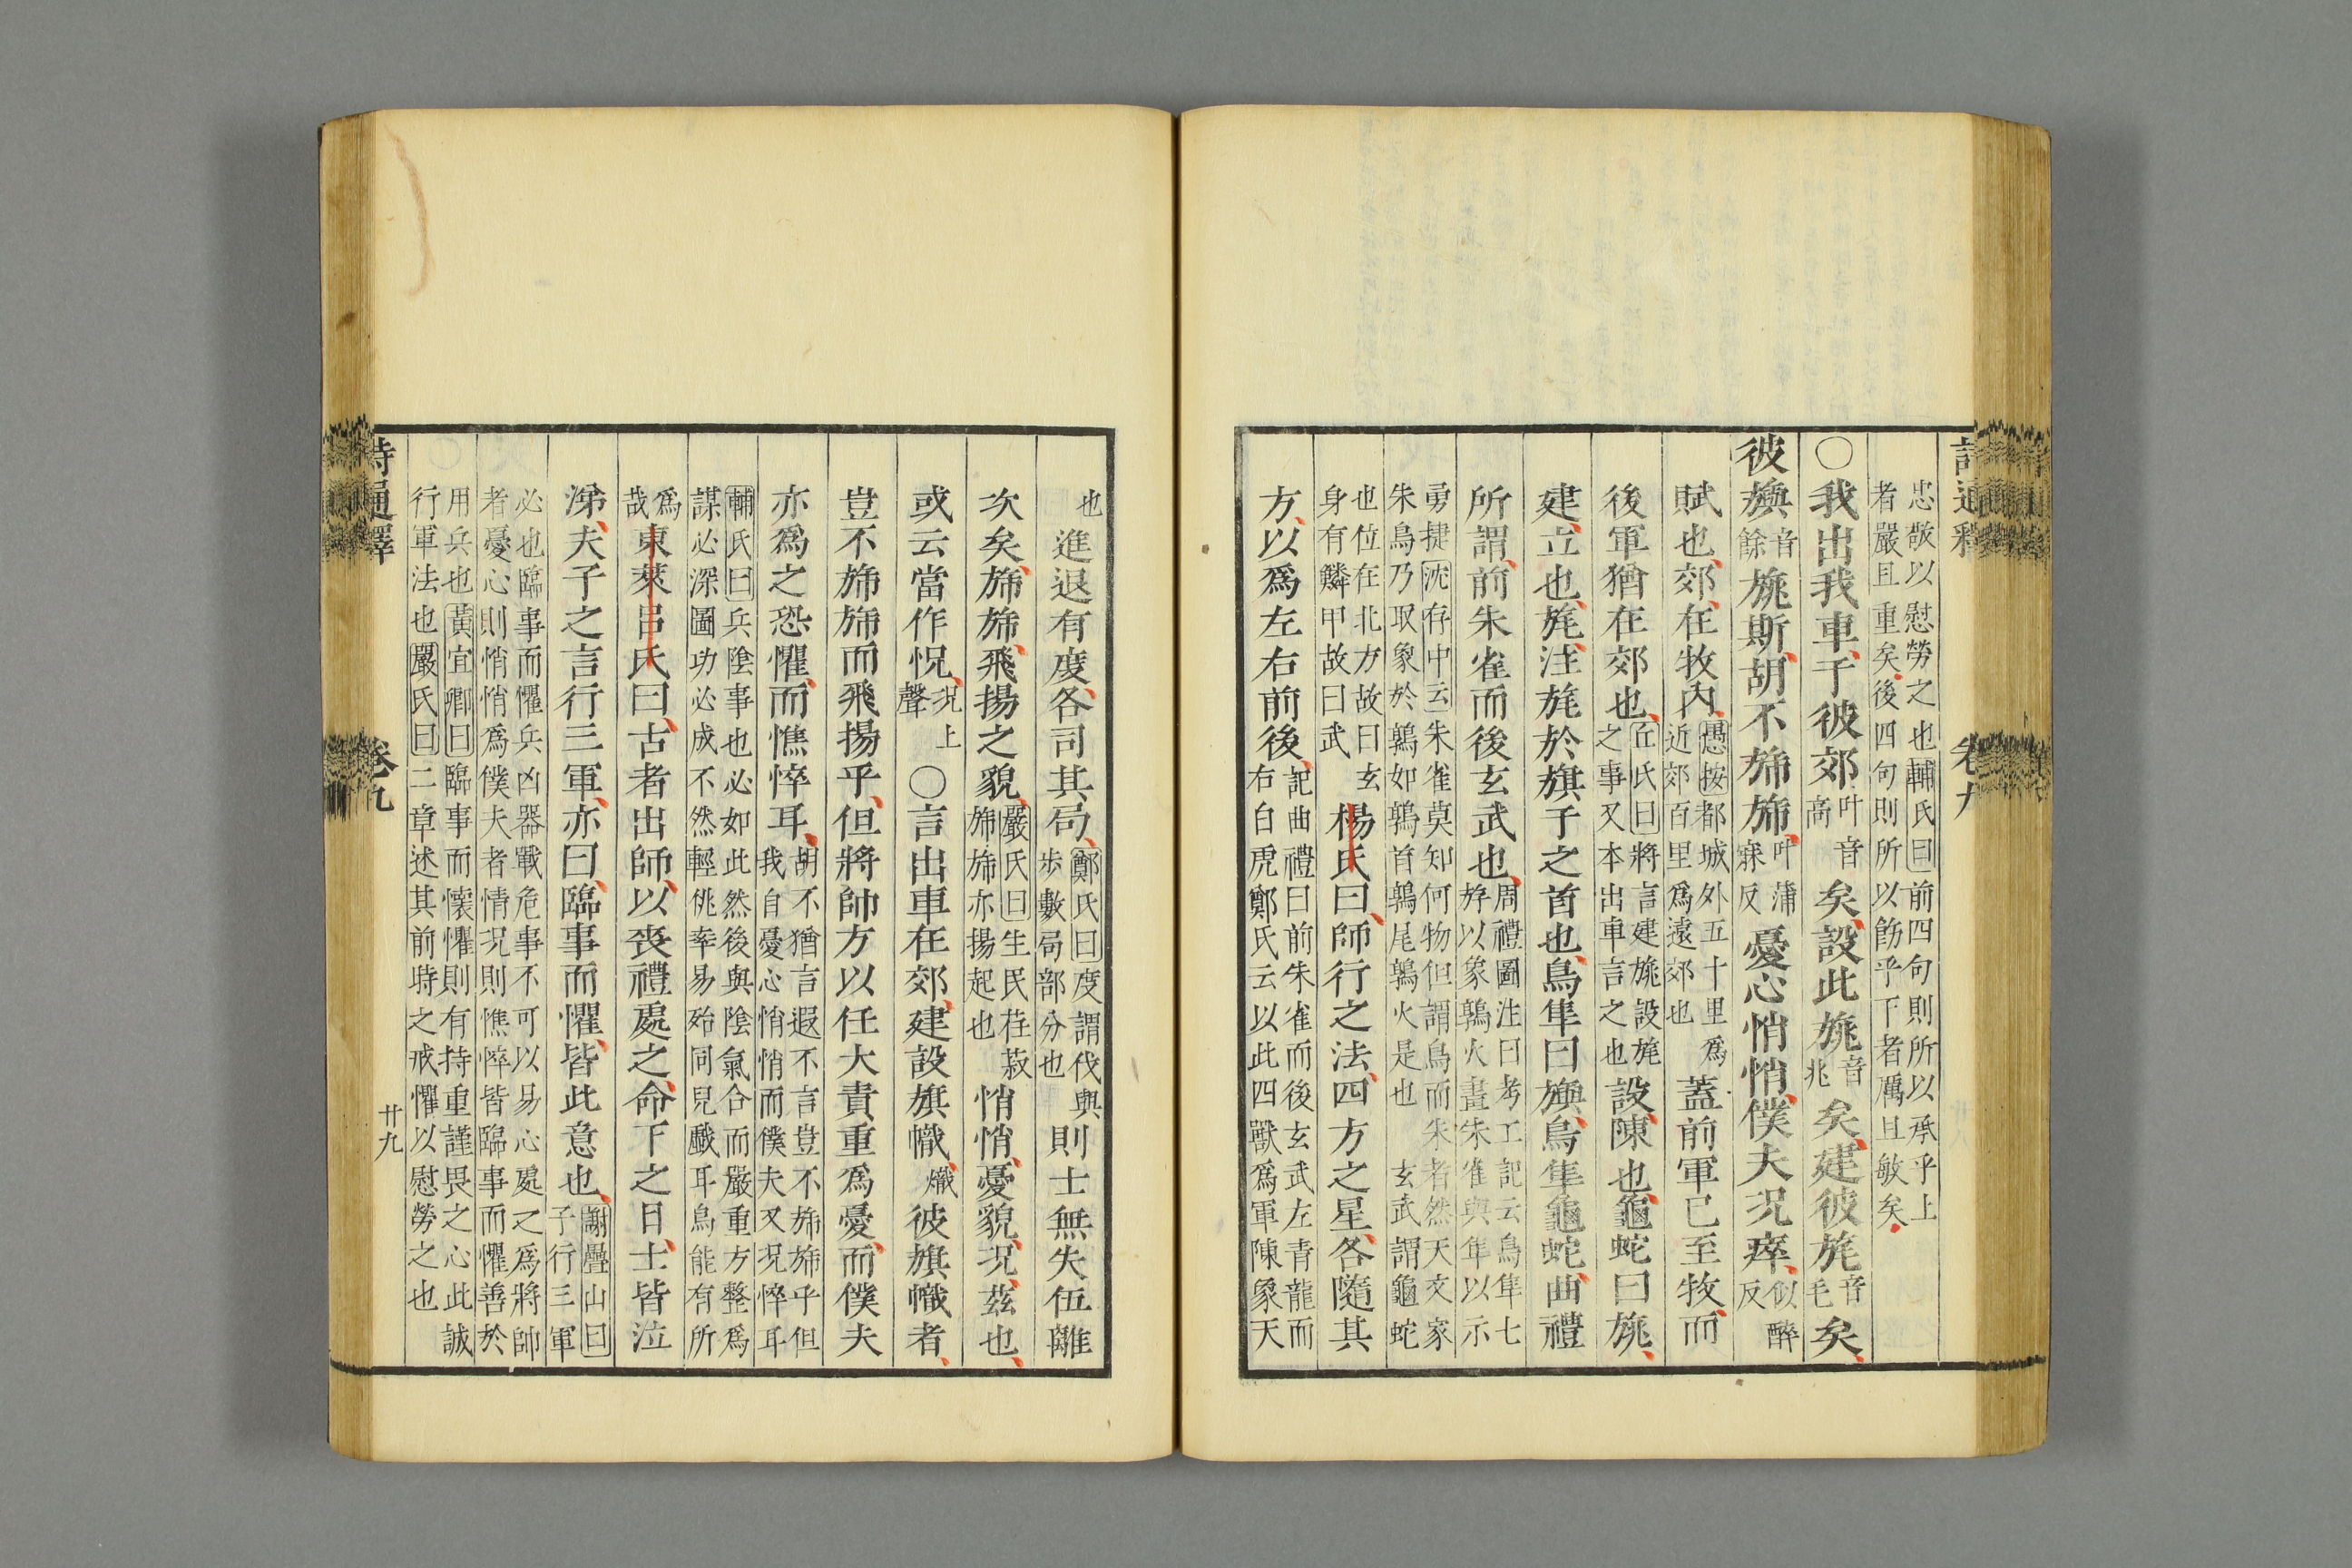 忠敬以慰勞之也輔氏曰前四句則所以承乎上
者嚴且重矣後四句則所以飭乎下者厲且敏矣
○我出我車于彼郊叶音高矣設此旐音兆矣建彼旄音毛矣
彼旟音餘旐斯胡不旆旆叶蒲寐反憂心悄悄僕夫況瘁似醉反
賦也郊在牧內愚按都城外五十里爲近郊百里爲遠郊也蓋前軍已至牧而
後軍猶在郊也丘氏曰將言建旐設旄之事又本出車言之也設陳也龜蛇曰旐
建立也旄注旄於旗干之首也鳥隼曰旟鳥隼龜蛇曲禮
所謂前朱雀而後玄武也周禮圖注曰考工記云鳥隼七斿以象鶉火畫朱雀與隼以示
勇捷沈存中云朱雀莫知何物但謂鳥而朱者然天文家
朱鳥乃取象於鶉如鶉首鶉尾鶉火是也 玄武謂龜蛇
也位在北方故曰玄身有鱗甲故曰武楊氏曰師行之法四方之星各隨其
方以爲左右前後記曲禮曰前朱雀而後玄武左青龍而右白虎鄭氏云以此四獸爲軍陳象天
詩通釋 卷九
也進退有度各司其局鄭氏曰度謂伐與步數局部分也則士無失伍離
次矣旆旆飛揚之貌嚴氏曰生民荏菽旆旆亦揚起也悄悄憂貌況茲也
或云當作怳況上聲○言出車在郊建設旗幟熾彼旗幟者
豈不旆旆而飛揚乎但將帥方以任大責重爲憂而僕夫
亦爲之恐懼而憔悴耳胡不猶言遐不言豈不旆旆乎但我自憂心悄悄而僕夫又況悴耳
輔氏曰兵陰事也必如此然後與陰氣合而嚴重方整爲
謀必深圖功必成不然輕佻幸易殆同兒戲耳烏能有所
爲哉東萊呂氏曰古者出師以喪禮處之命下之日士皆泣
涕夫子之言行三軍亦曰臨事而懼皆此意也謝疊山曰子行三軍
必也臨事而懼兵凶器戰危事不可以易心處之爲將帥
者憂心則悄悄爲僕夫者情況則憔悴皆臨事而懼善於
用兵也黃宜卿曰臨事而懷懼則有持重謹畏之心此誠
行軍法也嚴氏曰二章述其前時之戒懼以慰勞之也
詩通釋 卷九 廿九